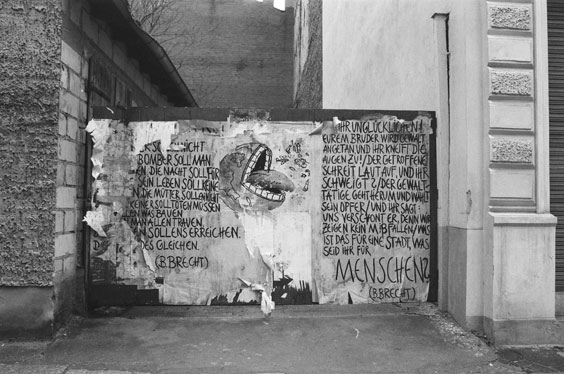 BOMBER SOLL MAN
DIE NACHT SOLL FÜR
SEIN LEBEN SOLL KEINE
DIE MÜTTER SOLLEN NICHT
KEINER SOLL TÖTEN MÜSSEN
WAS BAUEN
ALLEN TRAUEN.
SOLLENS ERREICHEN.
DES GLEICHEN.
(B.BRECHT)
IHR UNGLÜCKLICHEN!
EUREM BRUDER WIRD GEWALT
ANGETAN UND IHR KNEIFT DIE
AUGEN ZU!/DER GETROFFENE
SCHREIT LAUT AUF, UND IHR
SCHWEIGT?/DER GEWALT-
TÄTIGE GEHT HERUM UND WÄHLT
SEIN OPFER/UND IHR SAGT
UNS VERSCHONT ER, DENN WIR
ZEIGEN KEIN MIßFALLEN/WAS
IST DAS FÜR EINE STADT, WAS
SEID IHR FÜR
MENSCHEN?
(B.BRECHT)